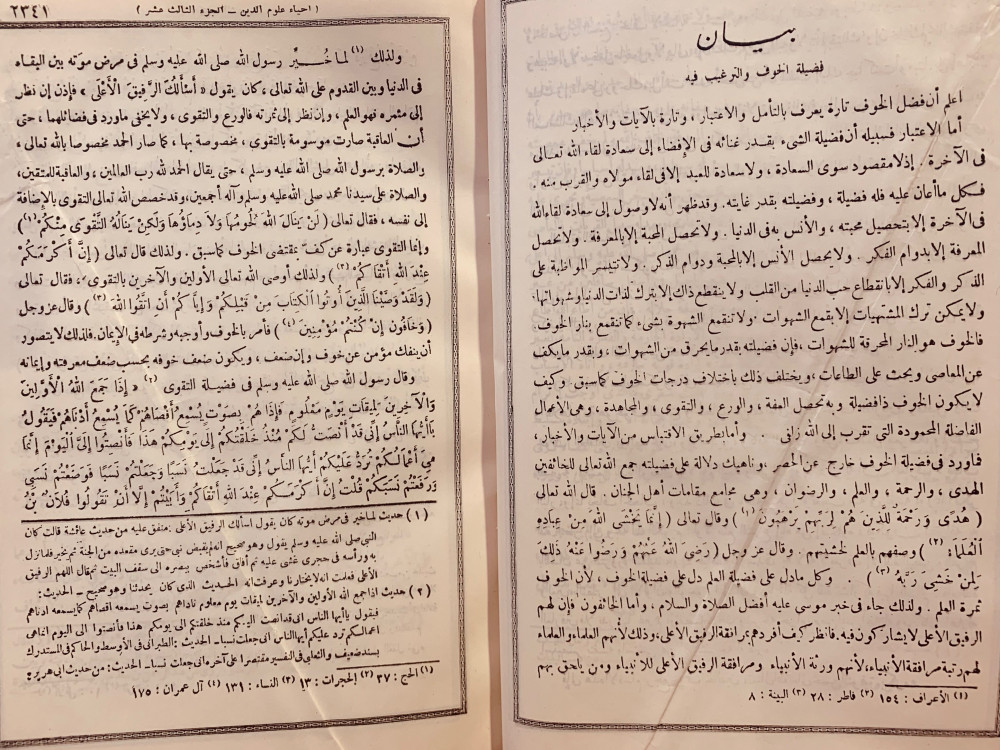 بيان
فضيلة الخوف والترغيب فيه
اعلم أن فضل الخوف تارة يعرف بالتأمل والاعتبار ، وتارة بالآيات والأخبار
أما الاعتبار فسبيله أن فضيلة الشىء بقدر غنائه فى الإفضاء إلى سعادة لقاء الله تعالى
فى الآخرة . إذ لا مقصود سوى السعادة ، ولا سعادة للعبد إلا فى لقاء مولاه والقرب منه .
فكل ما أعان عليه فله فضيلة ، وفضيلته بقدر غايته . وقد ظهر أنه لا وصول إلى سعادة لقاء الله
فى الآخرة إلا بتحصيل محبته ، والأنس به فى الدنيا . ولا تحصل المحبة إلا بالمعرفة . ولا تحصل
المعرفة إلا بدوام الفكر . ولا يحصل الأنس إلا بالمحبة ودوام الذكر . ولا تتيسر المواظبة على
الذكر والفكر إلا بانقطاع حب الدنيا من القلب ولا ينقطع ذلك إلا بترك لذات الدنيا وشهواتها.
ولا يمكن ترك المشتهيات إلا بقمع الشهوات . ولا تنقمع الشهوة بشىء كما تنقمع بنار الخوف.
فالخوف هو النار المحرقة للشهوات ، فإن فضيلته بقدر ما يحرق من الشهوات ، وبقدر ما يكف
عن المعاصى ويحث على الطاعات ، ويختلف ذلك باختلاف درجات الخوف كما سبق . وكيف
لا يكون الخوف ذا فضيلة وبه تحصل العفة ، والورع ، والتقوى ، والمجاهدة ، وهى الأعمال
الفاضلة المحمودة التى تقرب إلى الله زلفى . وأما بطريق الاقتباس من الآيات والأخبار ،
فما ورد فى فضيلة الخوف خارج عن الحصر ، وناهيك دلالة على فضيلته جمع الله تعالى للخائفين
الهدى ، والرحمة ، والعلم ، والرضوان ، وهى مجامع مقامات أهل الجنان . قال الله تعالى
( هُدًى وَرَحْمَةٌ لِلَّذِينَ هُمْ لِرَبِّهِمْ يَرْهَبُونَ (١) ) وقال تعالى ( إِنَّمَا يَخْشَى اللهَ مِنْ عِبَادِهِ
الْعُلَمَاءُ (٢) ) وصفهم بالعلم لخشيتهم . وقال عز وجل ( رَضِىَ اللهُ عَنْهُمْ وَرَضُوا عَنْهُ ذَلِكَ
لِمَنْ خَشِىَ رَبَّهُ (٣) ) . وكل ما دل على فضيلة العلم دل على فضيلة الخوف ، لأن الخوف
ثمرة العلم . ولذلك جاء فى خبر موسى عليه أفضل الصلاة والسلام ، وأما الخائفون فإن لهم
الرفيق الأعلى لا يشاركون فيه. فانظر كيف أفردهم بمرافقة الرفيق الأعلى ، وذلك لأنهم العلماء والعلماء
لهم رتبة مرافقة الأنبياء ، لأنهم ورثة الأنبياء ومرافقة الرفيق الأعلى للأنبياء ومن يلحق بهم
(١) الأعراف : ١٥٤ (٢) فاطر : ٢٨ (٣) البينة : ٨
( احياء علوم الدين – الجزء الثالث عشر )
٢٣٤١
ولذلك (١) لما خُيِّر رسول الله صلى الله عليه وسلم فى مرض موته بين البقاء
فى الدنيا وبين القدوم على الله تعالى ، كان يقول « أَسْأَلُكَ الرَّفِيقَ الْأَعْلَى » فإذن إن نظر
إلى مثمره فهو العلم ، وإن نظر إلى ثمرته فالورع والتقوى ، ولا يخفى ما ورد فى فضائلهما ، حتى
أن العاقبة صارت موسومة بالتقوى ، مخصوصة بها ، كما صار الحمد مخصوصا بالله تعالى ،
والصلاة برسول الله صلى الله عليه وسلم ، حتى يقال الحمد لله رب العالمين ، والعاقبة للمتقين ،
والصلاة على سيدنا محمد صلى الله عليه وسلم وآله أجمعين ، وقد خصص الله تعالى التقوى بالإضافة
إلى نفسه ، فقال تعالى ( لَنْ يَنَالَ اللهَ لُحُومُهَا وَلَا دِمَاؤُهَا وَلَكِنْ يَنَالُهُ التَّقْوَى مِنْكُمْ (١) )
وإنما التقوى عبارة عن كفّ بمقتضى الخوف كما سبق . ولذلك قال تعالى ( إِنَّ أَكْرَمَكُمْ
عِنْدَ اللهِ أَتْقَاكُمْ (٢) ) ولذلك أوصى الله تعالى الأولين والآخرين بالتقوى ، فقال تعالى
( وَلَقَدْ وَصَّيْنَا الَّذِينَ أُوتُوا الْكِتَابَ مِنْ قَبْلِكُمْ وَإِيَّاكُمْ أَنِ اتَّقُوا اللهَ (٣) ) وقال عز وجل
( وَخَافُونِ إِنْ كُنْتُمْ مُؤْمِنِينَ (٤) ) فأمر بالخوف وأوجبه وشرطه فى الإيمان. فلذلك لا يتصور
أن ينفك مؤمن عن خوف وإن ضعف ، ويكون ضعف خوفه بحسب ضعف معرفته وإيمانه
وقال رسول الله صلى الله عليه وسلم فى فضيلة التقوى (٢) « إِذَا جَمَعَ اللهُ الْأَوَّلِينَ
وَالْآخِرِينَ لِمِيقَاتِ يَوْمٍ مَعْلُومٍ فَإِذَا هُمْ بِصَوْتٍ يُسْمِعُ أَقْصَاهُمْ كَمَا يُسْمِعُ أَدْنَاهُمْ فَيَقُولُ
يَا أَيُّهَا النَّاسُ إِنِّى قَدْ أَنْصَتُّ لَكُمْ مُنْذُ خَلَقْتُكُمْ إِلَى يَوْمِكُمْ هَذَا فَأَنْصِتُوا إِلَىَّ الْيَوْمَ إِنَّمَا
هِىَ أَعْمَالُكُمْ تُرَدُّ عَلَيْكُمْ أَيُّهَا النَّاسُ إِنِّى قَدْ جَعَلْتُ نَسَبًا وَجَعَلْتُمْ نَسَبًا فَوَضَعْتُمْ نَسَبِى
وَرَفَعْتُمْ نَسَبَكُمْ قُلْتُ إِنَّ أَكْرَمَكُمْ عِنْدَ اللهِ أَتْقَاكُمْ وَأَبَيْتُمْ إِلَّا أَنْ تَقُولُوا فُلَانُ بْنُ
( ١ ) حديث لما خير فى مرض موته كان يقول أسألك الرفيق الأعلى : متفق عليه من حديث عائشة قالت كان
النبى صلى الله عليه وسلم يقول وهو صحيح أنه لم يقبض نبى حتى يرى مقعده من الجنة ثم يخير فلما نزل
به ورأسه فى حجرى غشى عليه ثم أفاق فأشخص ببصره إلى سقف البيت ثم قال اللهم الرفيق
الأعلى فعلمت أنه لا يختارنا وعرفت أنه الحديث الذى كان يحدثنا وهو صحيح – الحديث :
( ٢ ) حديث إذا جمع الله الأولين والآخرين لميقات يوم معلوم ناداهم بصوت يسمعه أقصاهم كما يسمعه أدناهم
فيقول يا أيها الناس إنى قد أنصت إليكم منذ خلقتكم إلى يومكم هذا فأنصتوا إلى اليوم إنما هى
أعمالكم ترد عليكم أيها الناس إنى جعلت نسبا – الحديث : الطبرانى فى الأوسط والحاكم فى المستدرك
بسند ضعيف والثعلبى فى التفسير مقتصرا على آخره إنى جعلت نسبا – الحديث : من حديث أبى هريرة :
(١) الحج : ٣٧ (٢) الحجرات : ١٣ (٣) النساء : ١٣١ (٤) آل عمران : ١٧٥